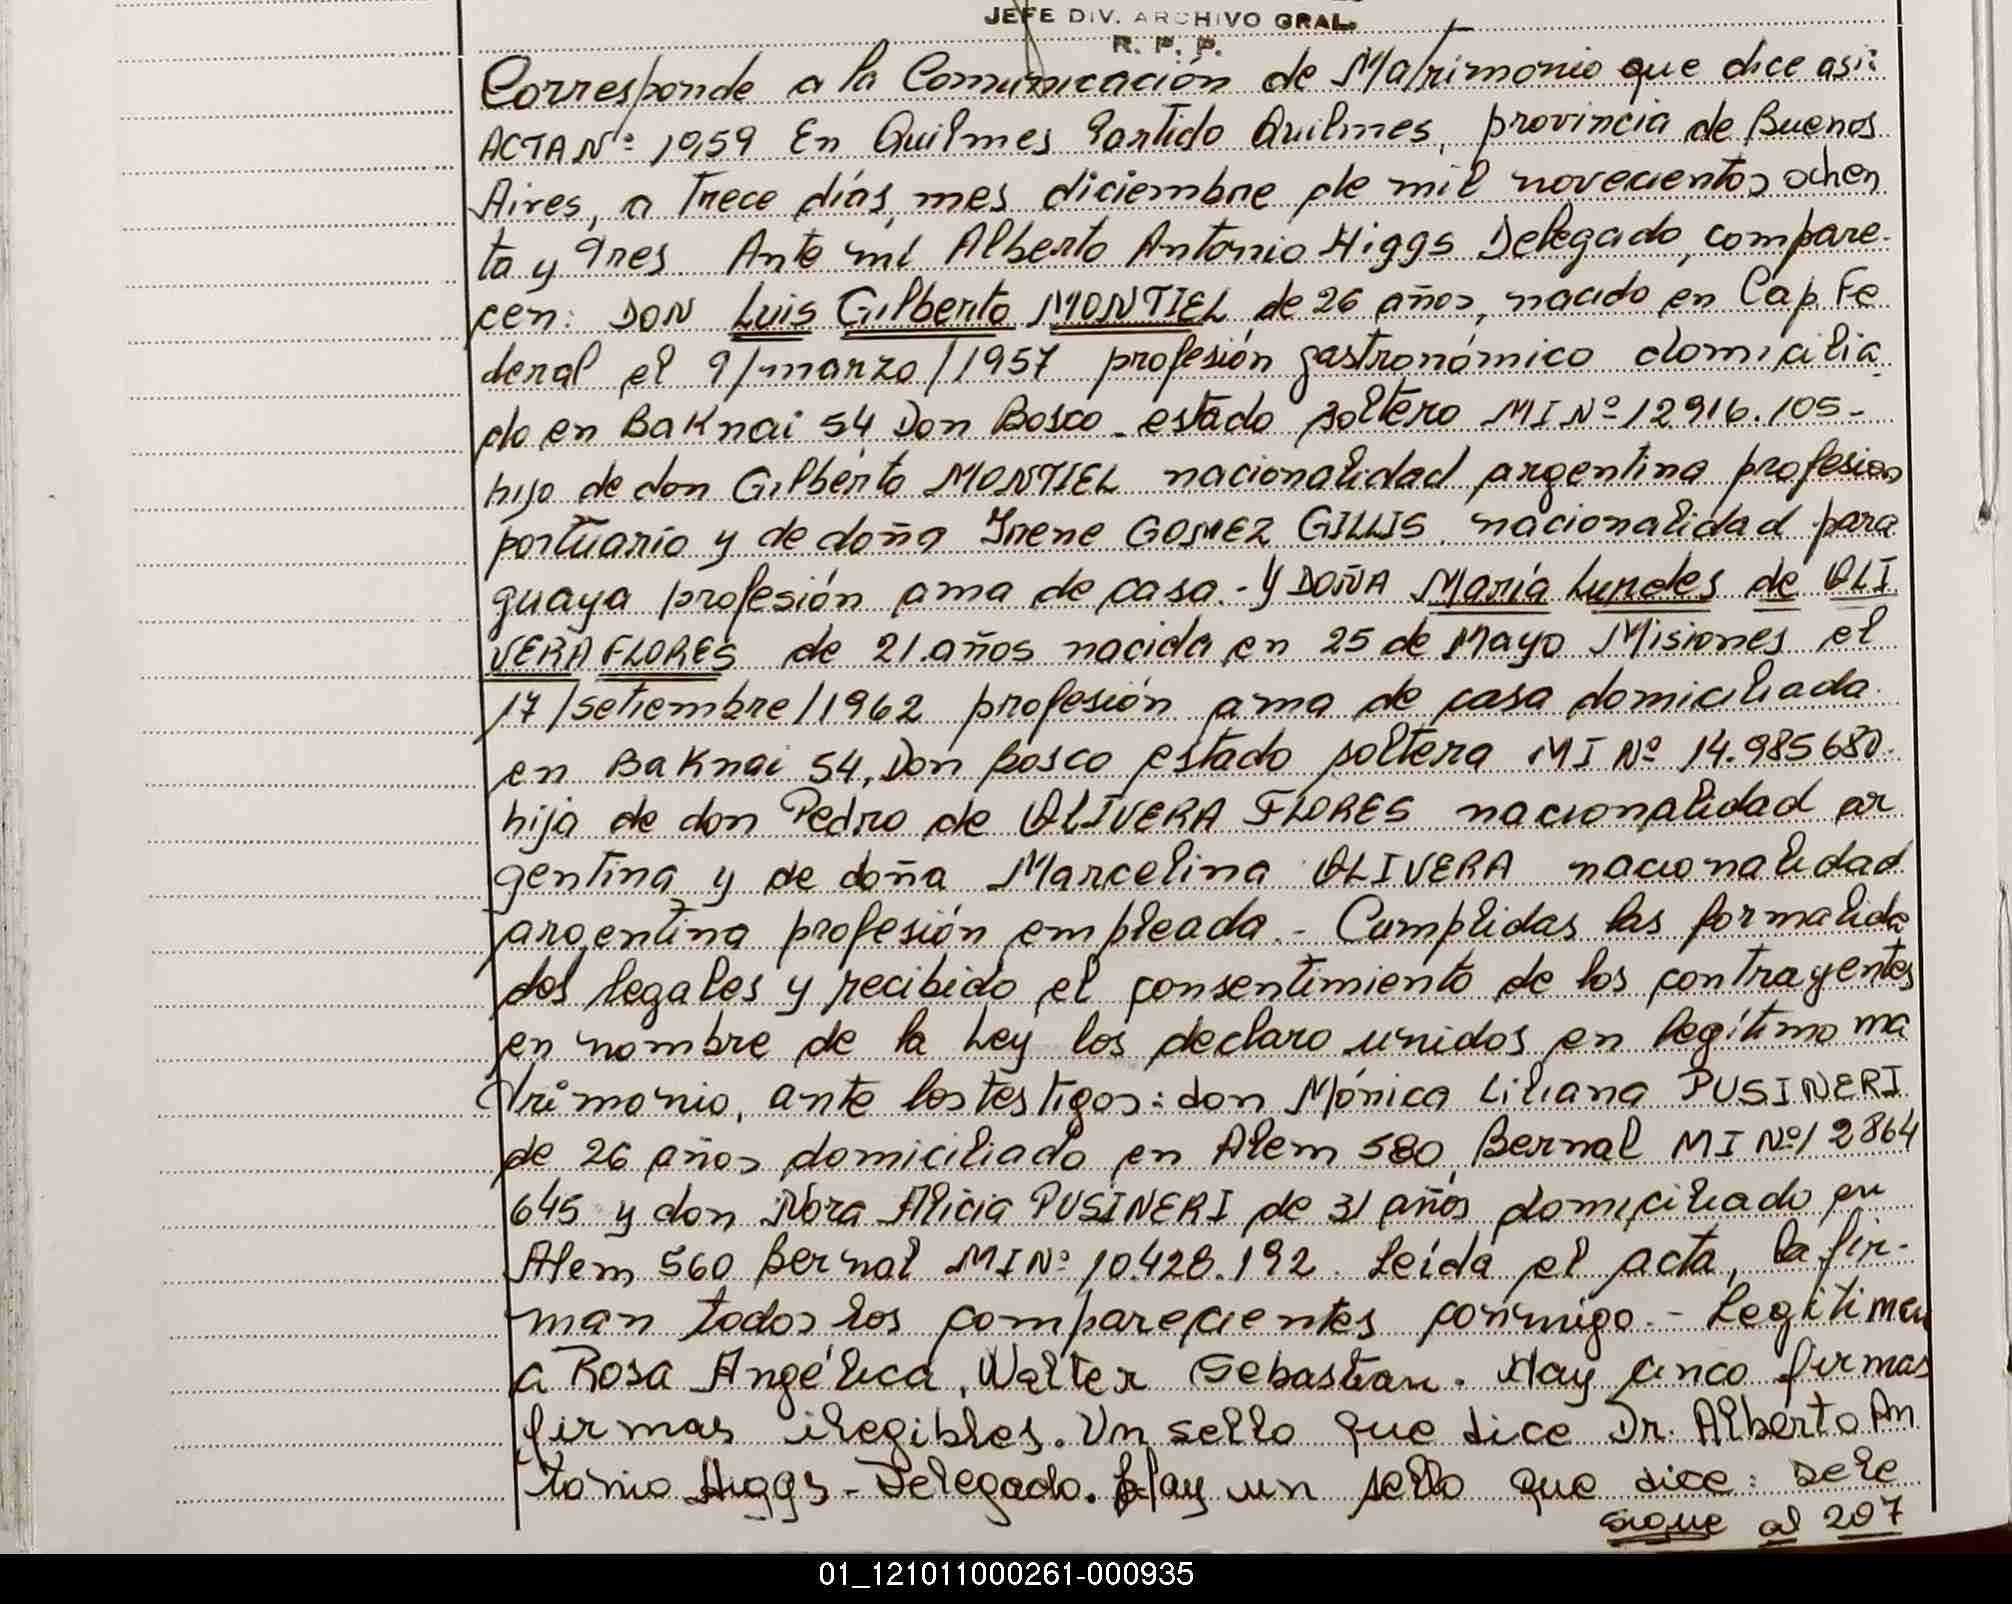 JEFE DIV. ARCHIVO GRAL.
R. P. P.
Corresponde a la Comunicación de Matrimonio que dice asi:
ACTA Nº: 1959 En Quilmes Partido Quilmes, provincia de Buenos
Aires, a trece días, mes diciembre de mil novecientos ochen
ta y tres. Ante mi Alberto Antonio Higgs Delegado, compare-
cen: DON Luis Gilberto MONTIEL, de 26 años, nacido en Cap. Fe
deral el 9/marzo/1957 profesión gastronómico domicilia
do en BaKnai 54 Don Bosco - estado soltero MI Nº 12916.105-
hijo de don Gilberto MONTIEL nacionalidad argentina profesion
portuario y de doña Irene GOMEZ GILLIS, nacionalidad para
guaya profesión ama de casa.- Y DOÑA María Lurdes de OLI
VERA FLORES de 21 años nacida en 25 de Mayo Misiones el
17/setiembre/1962 profesión ama de casa domiciliada
en BaKnai 54, Don Bosco estado soltera MI Nº 14.985680.
hija de don Pedro de OLIVERA FLORES nacionalidad ar
gentina y de doña Marcelina OLIVERA nacionalidad
argentina profesión empleada.- Cumplidas las formalida
des legales y recibido el consentimiento de los contrayentes
en nombre de la Ley los declaro unidos en legítimo ma
trimonio, ante los testigos: don Mónica Liliana PUSINERI
de 26 años domiciliado en Alem 580, Bernal MI Nº 12864
645 y don Nora Alicia PUSINERI de 31 años domiciliado en
Alem 560 Bernal MI Nº 10.428.192. Leída el acta, la fir-
man todos los comparecientes conmigo.- Legitiman
a Rosa Angélica, Walter Sebastian. Hay cinco firmas
firmas ilegibles. Un sello que dice Dr. Alberto An
tonio Higgs - Delegado. Hay un sello que dice: Dele
sigue al 207
01_121011000261-000935